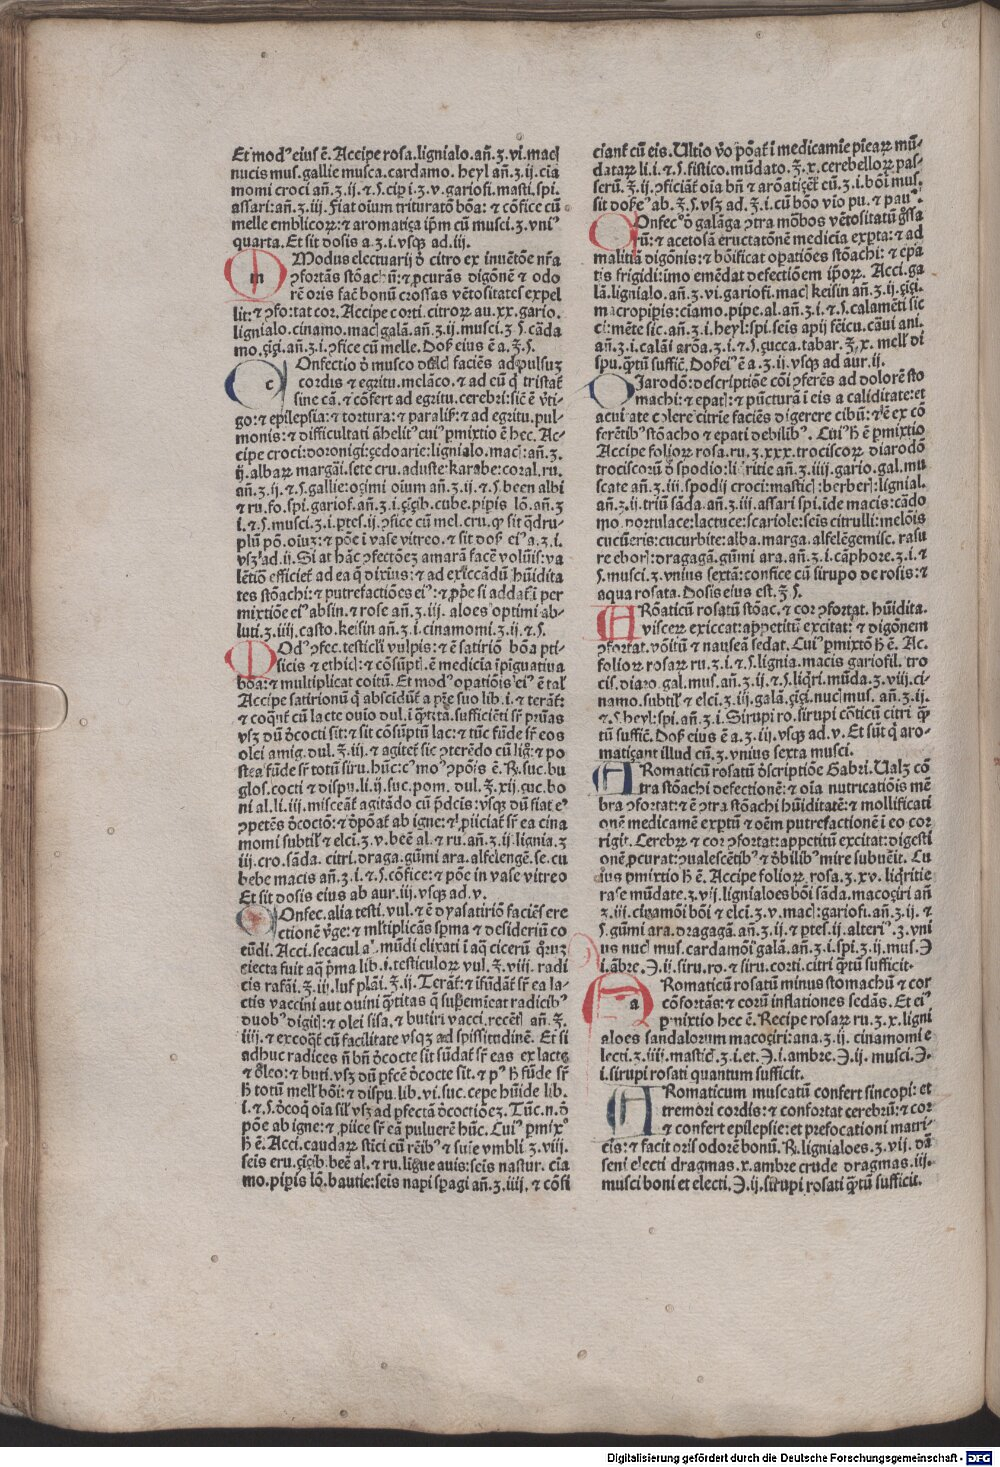 Et modꝰ eius ē. Accipe rosa. lignialo. añ. ʒ. vi. maci
nucis mus. gallie musca. cardamo. heyl añ. ʒ. ij. cia
momi croci añ. ʒ. ij. ⁊ .s. cipi i. ʒ. v. gariofi. masti. spi.
assari: añ. ʒ. iij. Fiat oium trituratō bōa: ⁊ cōfice cū
melle emblicoꝝ: ⁊ aromatiça ip̄m cū musci. ʒ. vniꝰ
quarta. Et sit dosis a. ʒ. i. vsqꝫ ad. iij.
m Modus electuarij ō citro ex inuētōe nr̄a
ꝯfortās stōachū: ⁊ ꝓcurās digōnē ⁊ odo
rē oris facē bonū crossas vētositates expel
lit: ⁊ ꝯfortat cor. Accipe corti. citroꝝ au. xx. gario.
lignialo. cinamo. maci galā. añ. ʒ. ij. musci. ʒ. s. cāda
mo. çiçi. añ. ʒ. i. ꝯfice cū melle. Dosꝭ eius ē a. ʒ. s.
c Onfectio ō musco dulci faciēs ad pulsuꝫ
cordis ⁊ egritu. melāco. ⁊ ad eū q̄ tristat̄
sine cā. ⁊ cōfert ad egritu. cerebri: sic̄ ē v̄ti-
go: ⁊ epilepsia: ⁊ tortura: ⁊ paralis̄: ⁊ ad egritu. pul-
monis: ⁊ difficultati āhelitꝰ cuiꝰ ꝑmixtio ē hec. Ac-
cipe croci: doronigi: çedoarie: lignialo. maci: añ. ʒ.
ij. albaꝝ margāi. sete cru. aduste: karabe: coral. ru.
añ. ʒ. ij. ⁊ .s. gallie: oçimi oium añ. ʒ. ij. ⁊ .s. been albi
⁊ ru. fo. spi. gariof. añ. ʒ. i. çiçib. cube. pipis lō. añ. ʒ
i. ⁊ .s. musci. ʒ. i. ꝑtes. ij. ꝯfice cū mel. cru. qꝫ sit q̄dru-
plū pō. oiuꝫ: ⁊ pōe ī vase vitreo. ⁊ sit dosꝭ eiꝰ a. ʒ. i.
vsꝫ ad. ij. Si at̄ hāc ꝯfectōeꝫ amarā facē voluīs: va
lētiō efficiet̄ ad ea q̄ diximꝰ: ⁊ ad exiccādū hūidita
tes stōachi: ⁊ putrefactiōes eiꝰ: ⁊ ꝓpe si addat̄ i per
mixtiōe eiꝰ absin. ⁊ rose añ. ʒ. iij. aloes optimi ab-
luti. ʒ. iiij. casto. keisin añ. ʒ. i. cinamomi. ʒ. ij. ⁊ .s.
Odꝰ ꝯfec. testiculi vulpis: ⁊ ē satiriō bōa pti-
sicis ⁊ ethicis: ⁊ cōsūpti. ē medicia īpīguatiua
bōa: ⁊ multiplicat coitū. Et modꝰ oꝑatiōis eiꝰ ē talꝭ
Accipe satirionū q̄ abscidūt̄ a pr̄e suo lib. i. ⁊ terāt̄:
⁊ coqnt̄ cū lacte ouio dul. ī q̄titā. sufficiēti sr̄ prūas
vsꝫ dū ōcocti sit: ⁊ sit cōsūptū lac: ⁊ tūc fūde sr̄ eos
olei amig. dul. ℥. iij. ⁊ agitet̄ sic ꝯterēdo cū ligō: ⁊ po
stea fūde sr̄ totū siru. hūc: cꝰ moꝰ ꝯpōis ē. ℞. suc. bu
glos. cocti ⁊ dispu. li. ij. suc. pom. dul. ℥. xij. çuc. bo
ni al. li. iij. misceāt̄ agitādo cū p̄dcis: vsqꝫ dū fiat eꝰ
ꝯpetēs ōcoctō: ⁊ ōpōat̄ ab igne: ⁊ ꝓiciat̄ sr̄ ea cina
momi subtilꝭ ⁊ elci. ʒ. v. beē al. ⁊ ru. añ. ʒ. ij. lignia. ʒ
iij. cro. sāda. citri. draga. gūmi ara. alfelengē. se. cu
bebe macis añ. ʒ. i. ⁊ .s. cōfice: ⁊ pōe in vase vitreo
Et sit dosis eius ab aur. iij. vsqꝫ ad. v.
c Onfec. alia testi. vul. ⁊ ē dyasatiriō faciēs ere
ctionē v̄ge: ⁊ mltiplicās spma ⁊ desideriū co
eūdi. Acci. secacul aꝰ. mūdi elixati ī aq̄ cicerū q̄ruꝫ
eiecta fuit aq̄ p̄ma lib. i. testiculoꝝ vul. ℥. viij. radi
cis rafāi. ℥. ij. luf plāi. ℥. ij. Terāt̄: ⁊ ifūdāt̄ sr̄ ea la-
ctis vaccini aut ouini q̄titas q̄ suꝑemīeat radicibꝰ
duobꝰ digitꝭ: ⁊ olei sisa. ⁊ butiri vacci. recētꝭ añ. ℥.
iiij. ⁊ excoqt̄ cū facilitate vsqꝫ ad spissitudinē. Et si
adhuc radices n̄ bn̄ ōcocte sit fūdat̄ sr̄ eas ex lacte
⁊ oleo: ⁊ buti. vsꝫ dū pfcē ōcocte sit. ⁊ pꝰ ħ fūde sr̄
ħ totū mellꝭ bōi: ⁊ dispu. lib. vi. suc. cepe hūide lib.
i. ⁊ .s. ōcoq̄ oīa silꝰ vsꝫ ad ꝑfectā ōcoctiōeꝫ. Tūc. n. ō
pōe ab igne: ⁊ ꝓiice sr̄ eā pulverē hūc. Cuiꝰ ꝑmixꝰ
ħ ē. Acci. caudaꝝ stici cū rēibꝰ ⁊ suie vmbli. ʒ. viij.
seis eru. çiçib. beē al. ⁊ ru. līgue auis: seis nastur. cia
mo. pipis lō. bautie: seis napi spagi añ. ʒ. iiij. ⁊ cōfi
ciant̄ cū eis. Ultio v̄o pōat̄ i medicamīe pīearꝝ mū-
dataꝝ li. i. ⁊ .s. fistico. mūdato. ℥. x. cerebelloꝝ pas-
serū. ℥. ij. ꝯficiāt̄ oīa bn̄ ⁊ arōatiçēt̄ cū. ʒ. i. bōi mus.
sit dosꝭ eꝰ ab. ℥. s. vsꝫ ad. ℥. i. cū bōo vio pu. ⁊ pauꝰ.
Onfecꝰ ō galāga ꝯtra mōbos vētositatū g̈ssa
rū: ⁊ acetosā eructatōnē medicia exꝑta: ⁊ ad
malitiā digōnis: ⁊ bōificat oꝑatiōes stōachi: ⁊ epa
tis frigidi: imo emēdat defectiōem ipōꝝ. Acci. ga
lā. lignialo. añ. ʒ. vi. gariofi. maci keisin añ. ʒ. ij. çiçi.
macropipis: ciamo. pipe. al. añ. ʒ. i. ⁊ .s. calamēti sic
ci: mēte sic. añ. ʒ. i. heyl: spi. seis apij fēicu. cāui ani.
añ. ʒ. i. calāi arōa. ʒ. i. ⁊ .s. çucca. tabar. ℥. x. mellꝭ di
spu. q̄tū suffic̄. Dosꝭ eiꝰ ē a. ʒ. ij. vsqꝫ ad aur. ij.
Diarodō: descriptiōe cōi ꝯferēs ad dolorē sto
machi: ⁊ epatꝭ: ⁊ pūcturā i eis a caliditate: et
acuitate colere citrie faciēs digerere cibū: ⁊ ē ex cō
ferētibꝰ stōacho ⁊ epati debilibꝰ. Cuiꝰ ħ ē ꝑmixtio
Accipe folioꝝ rosa. ru. ʒ. xxx. trociscoꝝ diarodō
trociscorū ō spodio: liqritie añ. ʒ. iiij. gario. gal. mu
scate añ. ʒ. iij. spodij croci: masticꝭ: berberꝭ: lignial.
añ. ʒ. ij. triū sāda. añ. ʒ. iij. assari spi. ide macis: cādo
mo. portulace: lactuce: scariole: seis citrulli: melōis
cucūeris: cucurbite: alba. marga. alfelēgemisc. rasu
re eborꝭ: dragagā. gūmi ara. añ. ʒ. i. cāphore. ʒ. i. ⁊
.s. musci. ʒ. vnius sextā: confice cū sirupo de rosis: ⁊
aqua rosata. Dosis eius est. ℥. s.
A Rōaticū rosatū stōac. ⁊ cor ꝯfortat. hūidita.
visceꝝ exiccat: appetitū excitat: ⁊ digōnem
ꝯfortat. vōitū ⁊ nauseā sedat. Cuiꝰ ꝑmixtō ħ ē. Ac.
folioꝝ rosaꝝ ru. ʒ. i. ⁊ .s. lignia. macis gariofil. tro
cis. diaro. gal. mus. añ. ʒ. ij. ⁊ .s. liqri. mūda. ʒ. viij. ci-
namo. subtilꝭ ⁊ elci. ʒ. iij. galā. çiçi. nucꝭ mus. añ. ʒ. ij.
⁊ .s. heyl: spi. añ. ʒ. i. Sirupi ro. sirupi cōticū citri q̄
tū suffic̄. Dosꝭ eius ē a. ʒ. iij. vsqꝫ ad. v. Et sūt q̄ aro-
matiçant illud cū. ʒ. vnius sexta musci.
A Romaticū rosatū ōscriptiōe Gabri. Ualꝫ cō
tra stōachi defectionē: ⁊ oīa nutricatiōis mē
bra ꝯfortat: ⁊ ē ꝯtra stōachi hūiditatē: ⁊ mollificati
onē medicamē exꝑtū ⁊ oēm putrefactionē i eo cor
rigit. Cerebꝝ ⁊ cor ꝯfortat: appetitū excitat: digesti
onē ꝓcurat: ꝯualescētibꝰ ⁊ ōbilibꝰ mire subuēit. Cu
ius ꝑmixtio ħ ē. Accipe folioꝝ rosa. ʒ. xv. liqritie
rase mūdate. ʒ. vij. lignialoes bōi sāda. macoçiri añ
ʒ. iij. cinamōi bōi ⁊ elci. ʒ. v. maci: gariofi. añ. ʒ. ij. ⁊
.s. gūmi ara. dragagā. añ. ʒ. ij. ⁊ ꝑtes. ij. alteriꝰ. ʒ. vni
us nucꝭ mus. cardamōi galā. añ. ʒ. i. spi. ʒ. ij. mus. ℈
i. ābre. ℈. ij. siru. ro. ⁊ siru. corti. citri q̄tū sufficit.
a Romaticū rosatū minus stomachū ⁊ cor
cōfortās: ⁊ eorū inflationes sedās. Et eiꝰ
ꝑmixtio hec ē. Recipe rosaꝝ ru. ʒ. x. ligni
aloes sandalorum macoçiri: ana. ʒ. ij. cinamomi e
lecti. ʒ. iiij. masticꝭ. ʒ. i. et. ℈. i. ambre. ℈. ij. musci. ℈.
i. sirupi rosati quantum sufficit.
A Romaticum muscatū confert sincopi: et
tremori cordis: ⁊ confortat cerebrū: ⁊ cor
⁊ confert epilepsie: et prefocationi matri-
cis: ⁊ facit oris odorē bonū. ℞. lignialoes. ʒ. vij. dā
seni electi dragmas. x. ambre crude dragmas. iij.
musci boni et electi. ℈. ij. sirupi rosati q̄tū sufficit.
Digitalisierung gefördert durch die Deutsche Forschungsgemeinschaft - DFG